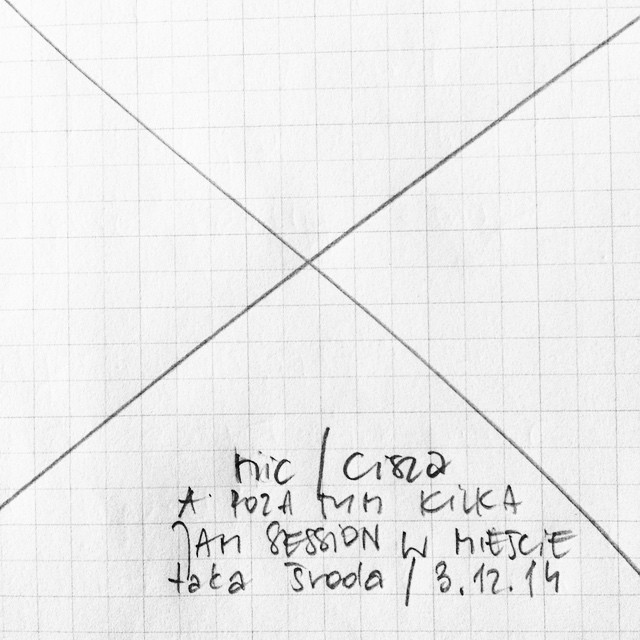 nic / cisza
A POZA TYM KILKA
JAM SESSION W MIEŚCIE
taka środa / 3.12.14